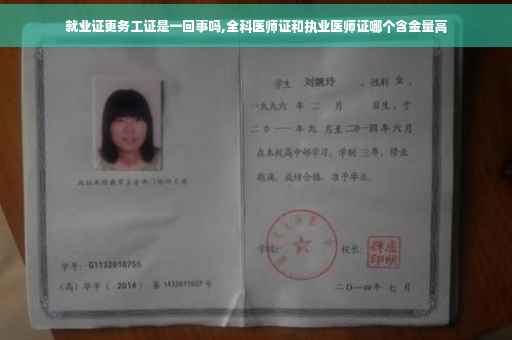 就业证更务工证是一回事吗,全科医师证和执业医师证哪个含金量高
学生 刘婉玲 、性别 女 、
一九九六 年 二 月 日生,于
二0一一年九 月至二0一四年 六 月
在本校高中部学习,学制 三年,修业
期满,成绩合格,准予毕业。
学号: G1132010755
(高)毕字( 2014 )第 1432011007 号
学校:
校长:
二〇一四年 七 月